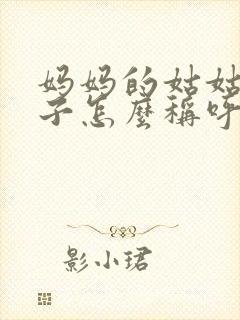 妈妈的姑姑
子怎麼稱呼
影小珺